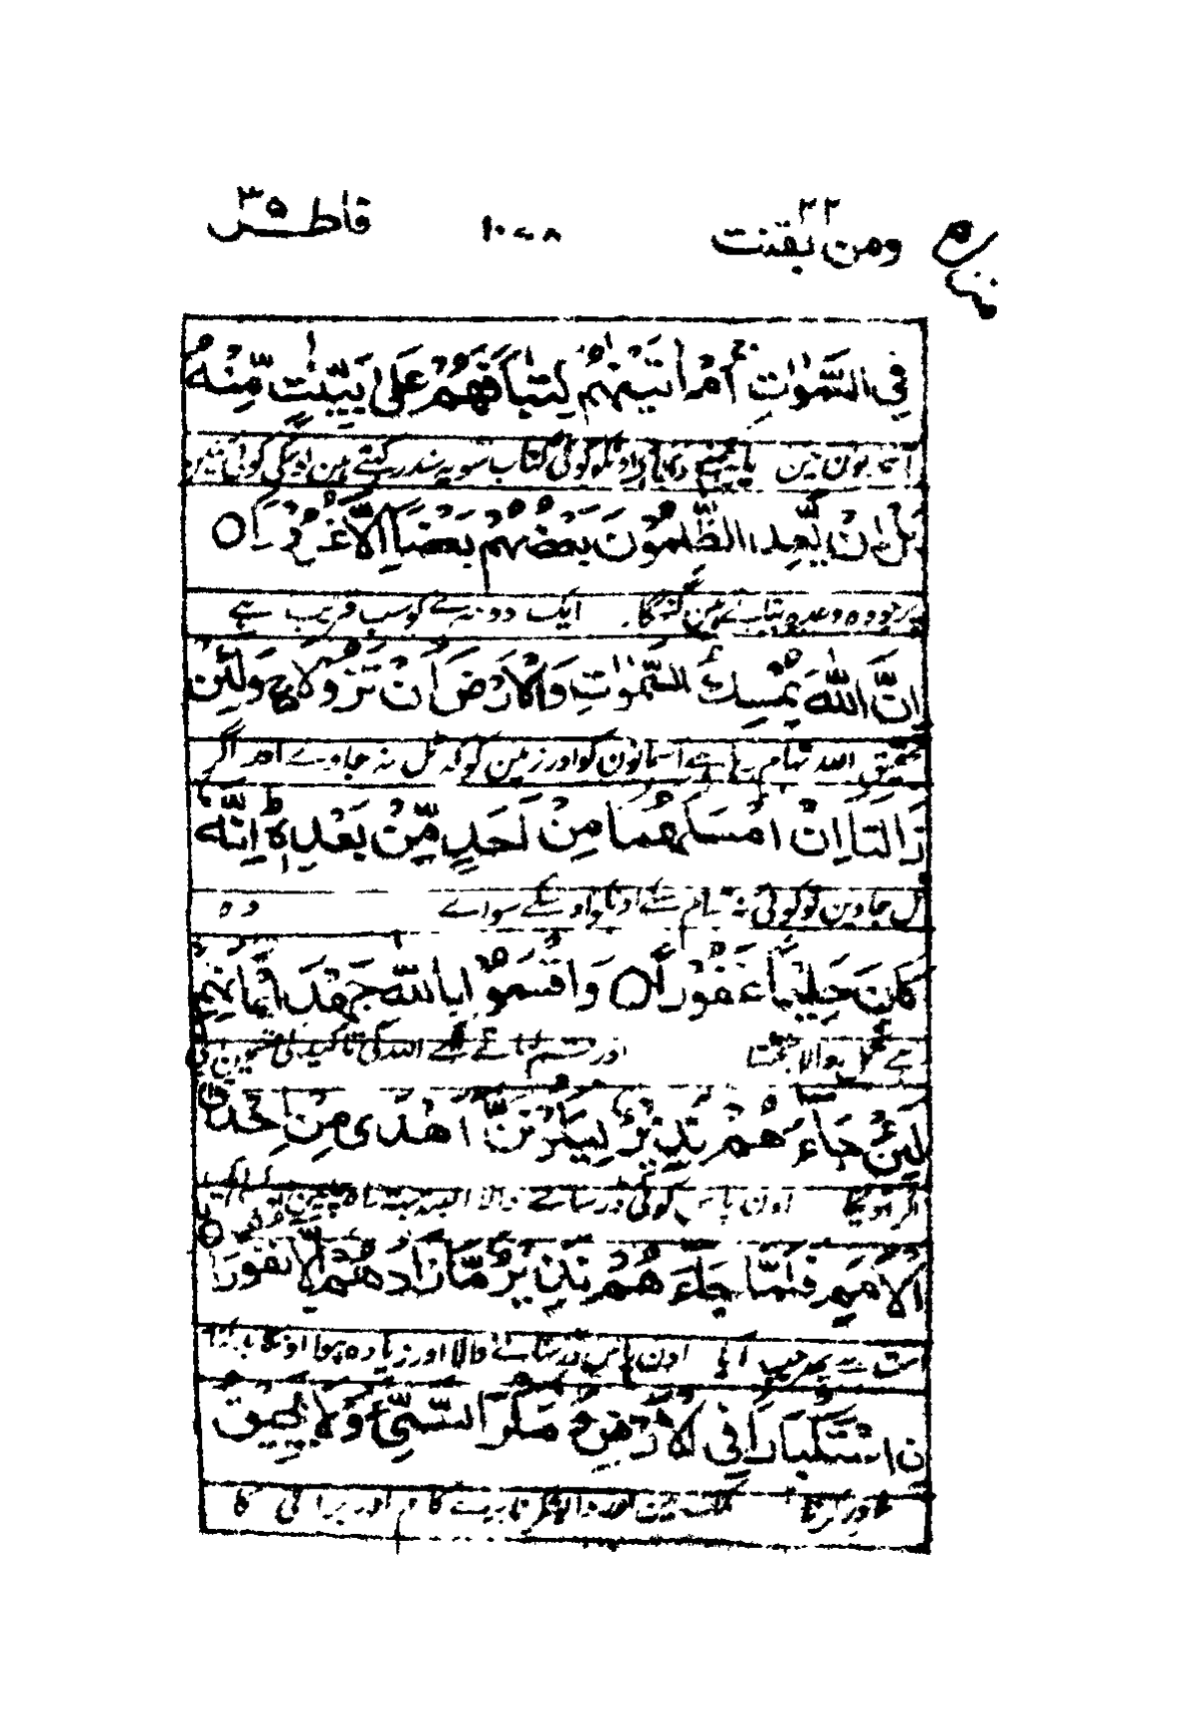 ومن یقنت ۲۲ ۱۰۷۸ فاطر ۳۵
فِي السَّمٰوٰتِ ۚ اَمْ اٰتَیْنٰهُمْ كِتٰبًا فَهُمْ عَلٰی بَیِّنٰتٍ مِّنْهُ ۚ
آسمانون مین یا ہمنے دی ہے اونکو کوئی کتاب سو یہ سند رکہتے ہین
بَلْ اِنْ یَّعِدُ الظّٰلِمُوْنَ بَعْضُهُمْ بَعْضًا اِلَّا غُرُوْرًا ○
پر جو وہ وعدہ بتاتے ہین گنہگار ایک دوسرے کو سب فریب ہے
اِنَّ اللّٰهَ یُمْسِكُ السَّمٰوٰتِ وَالْاَرْضَ اَنْ تَزُوْلَا ۚ وَلَئِنْ
تحقیق اللہ تہام رہا ہے آسمانون کو اور زمین کو کہ ٹل نہ جاوے اور اگر
زَالَتَا اِنْ اَمْسَكَهُمَا مِنْ اَحَدٍ مِّنْ بَعْدِهٖ ؕ اِنَّهٗ
ٹل جاوین تو کوئی نہ تہام سکے اونکو اوسکے سواے وہ
كَانَ حَلِیْمًا غَفُوْرًا ○ وَاَقْسَمُوْا بِاللّٰهِ جَهْدَ اَیْمَانِهِمْ
ہے تحمل والا بخشتا اور قسم کہاتے تہے اللہ کی تاکید کی قسمین اپنی
لَئِنْ جَآءَهُمْ نَذِیْرٌ لَّیَكُوْنُنَّ اَهْدٰی مِنْ اِحْدَی
اگر آویگا اون پاس کوئی ڈر سنانے والا البتہ
الْاُمَمِ ۚ فَلَمَّا جَآءَهُمْ نَذِیْرٌ مَّا زَادَهُمْ اِلَّا نُفُوْرَا
امت سے پہر جب آیا اون پاس ڈر سنانے والا اور زیادہ ہوا اونکا بدکنا
نِ اسْتِكْبَارًا فِی الْاَرْضِ وَ مَكْرَ السَّیِّئِ ؕ وَلَا یَحِیْقُ
غرور کرنا ملک مین اور داو کرنا برے کام اور برائی کا